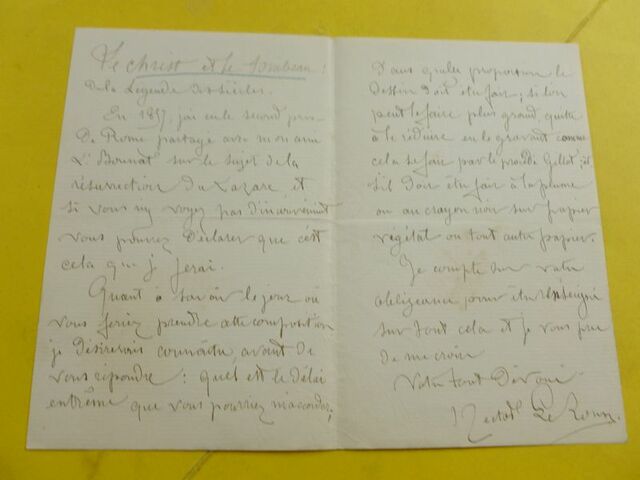 Le Christ et le Tombeau !
De la Légende des siècles.
En 1857, j'ai eu le second prix
De Rome partagé avec mon ami
Ln Bonnat sur le sujet de la
résurrection du Lazare, et
si vous n'y voyez pas d'inconvénient
vous pourrez déclarer que c'est
cela que je ferai.
Quant à savoir le jour où
vous feriez prendre cette composition
je désirerais connaître, avant de
vous répondre : quel est le délai
extrême que vous pourriez m'accorder,
Dans quelle proportion le
dessin doit être fait ; si l'on
peut le faire plus grand, quitte
à le réduire en le gravant comme
cela se fait par le procédé Gillot ;
s'il doit être fait à la plume
ou au crayon noir sur papier
végétal ou tout autre papier.
Je compte sur votre
obligeance pour être renseigné
sur tout cela et je vous prie
de me croire
Votre tout dévoué
Hector Le Roux